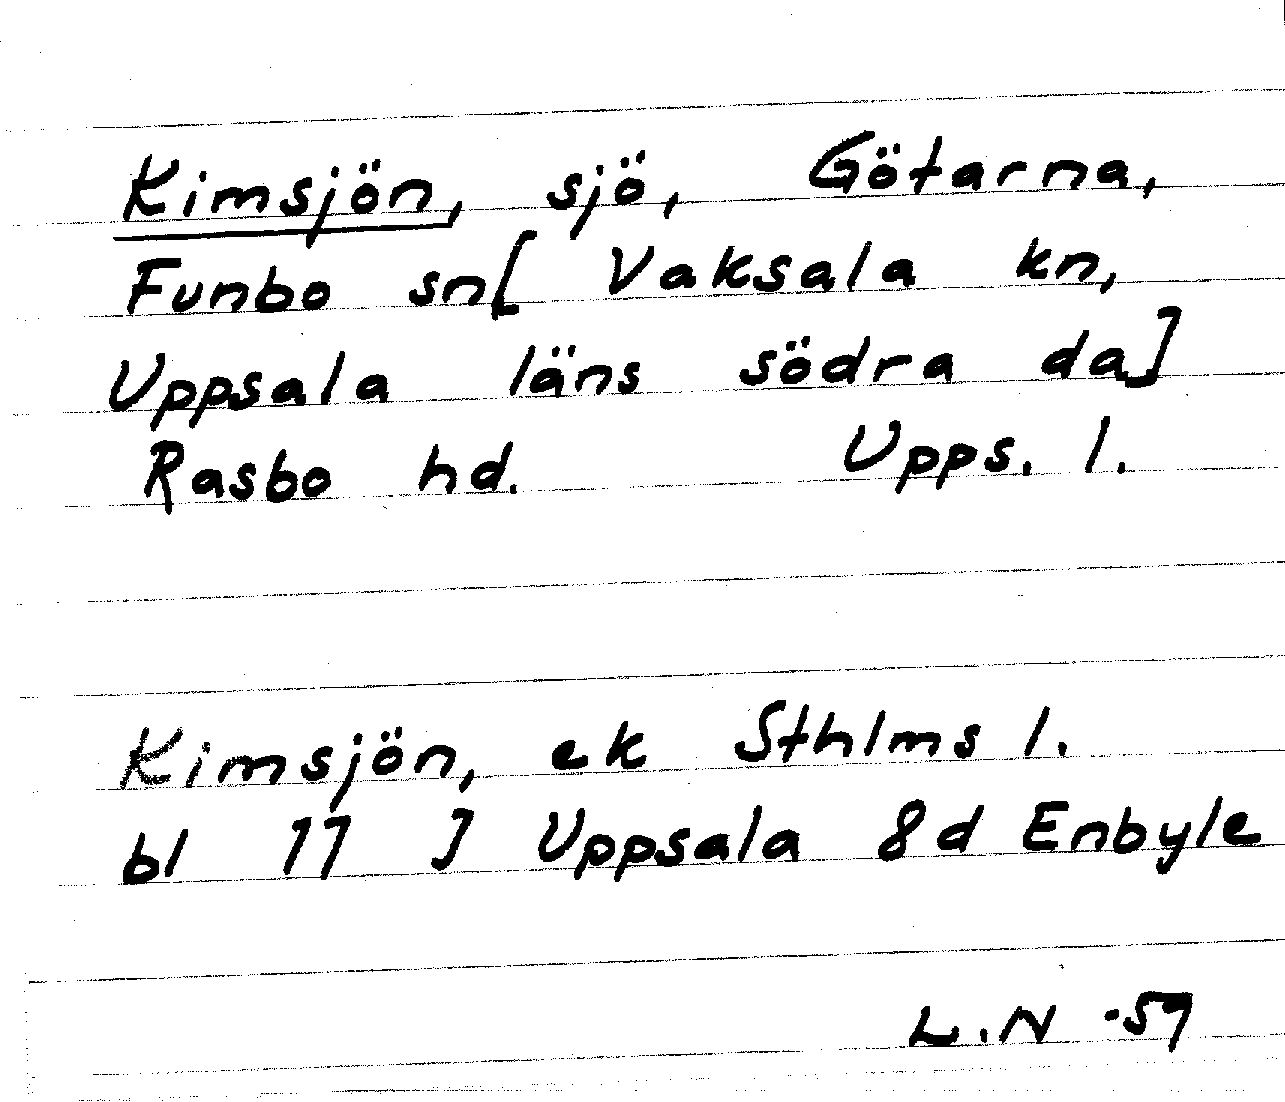 Kimsjön, sjö, Götarna,
Funbo sn[ Vaksala kn,
Uppsala läns södra da]
Rasbo hd. Upps. l.
Kimsjön, ek Sthlms l.
bl 11 J Uppsala 8d Enbyle
L.N -59